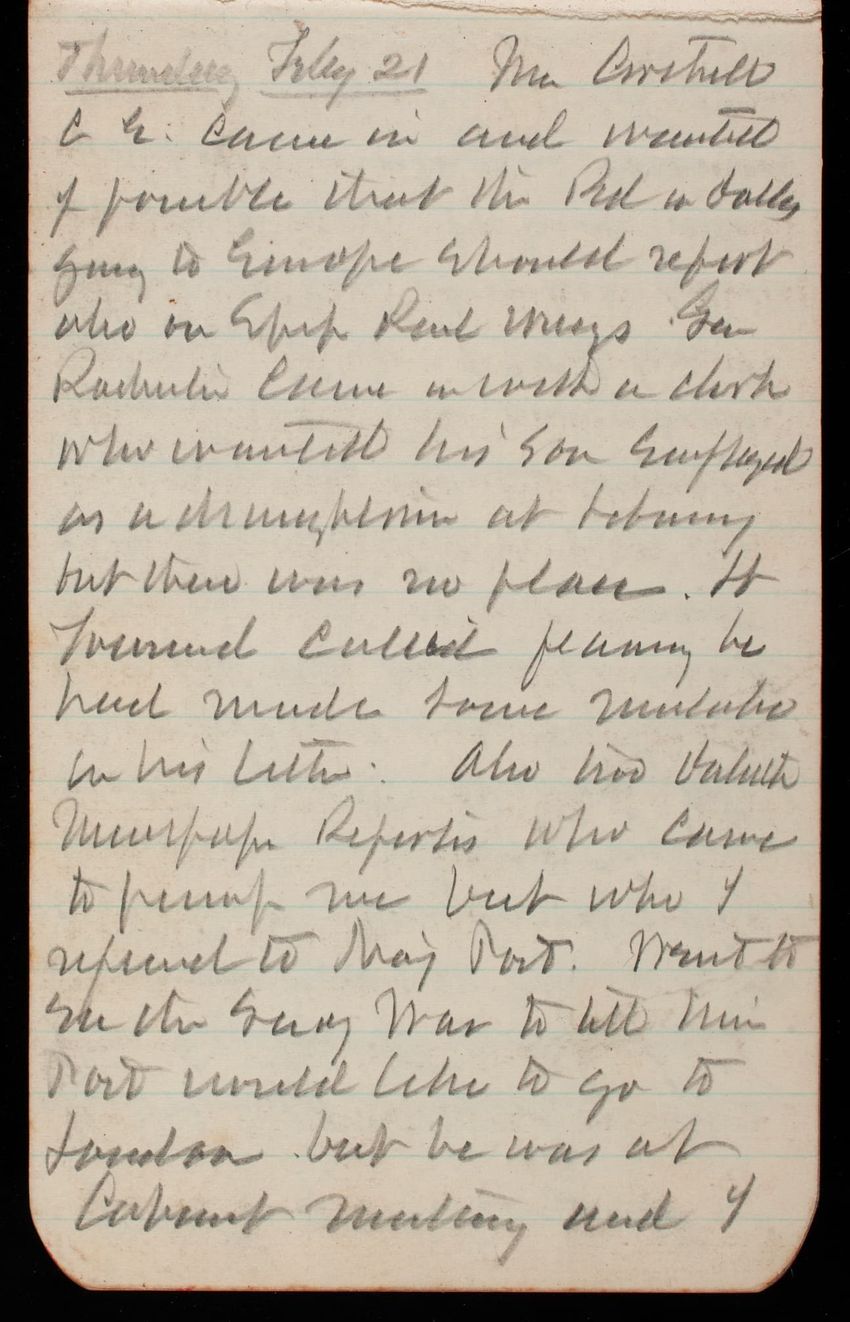 Thursday Feby 21 Mr
C E. came in and wanted
if possible that the Bd
going to Europe should report
also on Gen
came in with a clerk
who wanted his son employed
as a draughtsman at Albany
but there was no place. Lt
Townsend called fearing he
had made some mistake
in his letter. Also two Duluth
Newspaper Reporters who came
to pump me but who I
refered to Maj Post. Went to
See the Secy War to tell him
Post would like to go to
London but he was at
Cabinet meeting and I